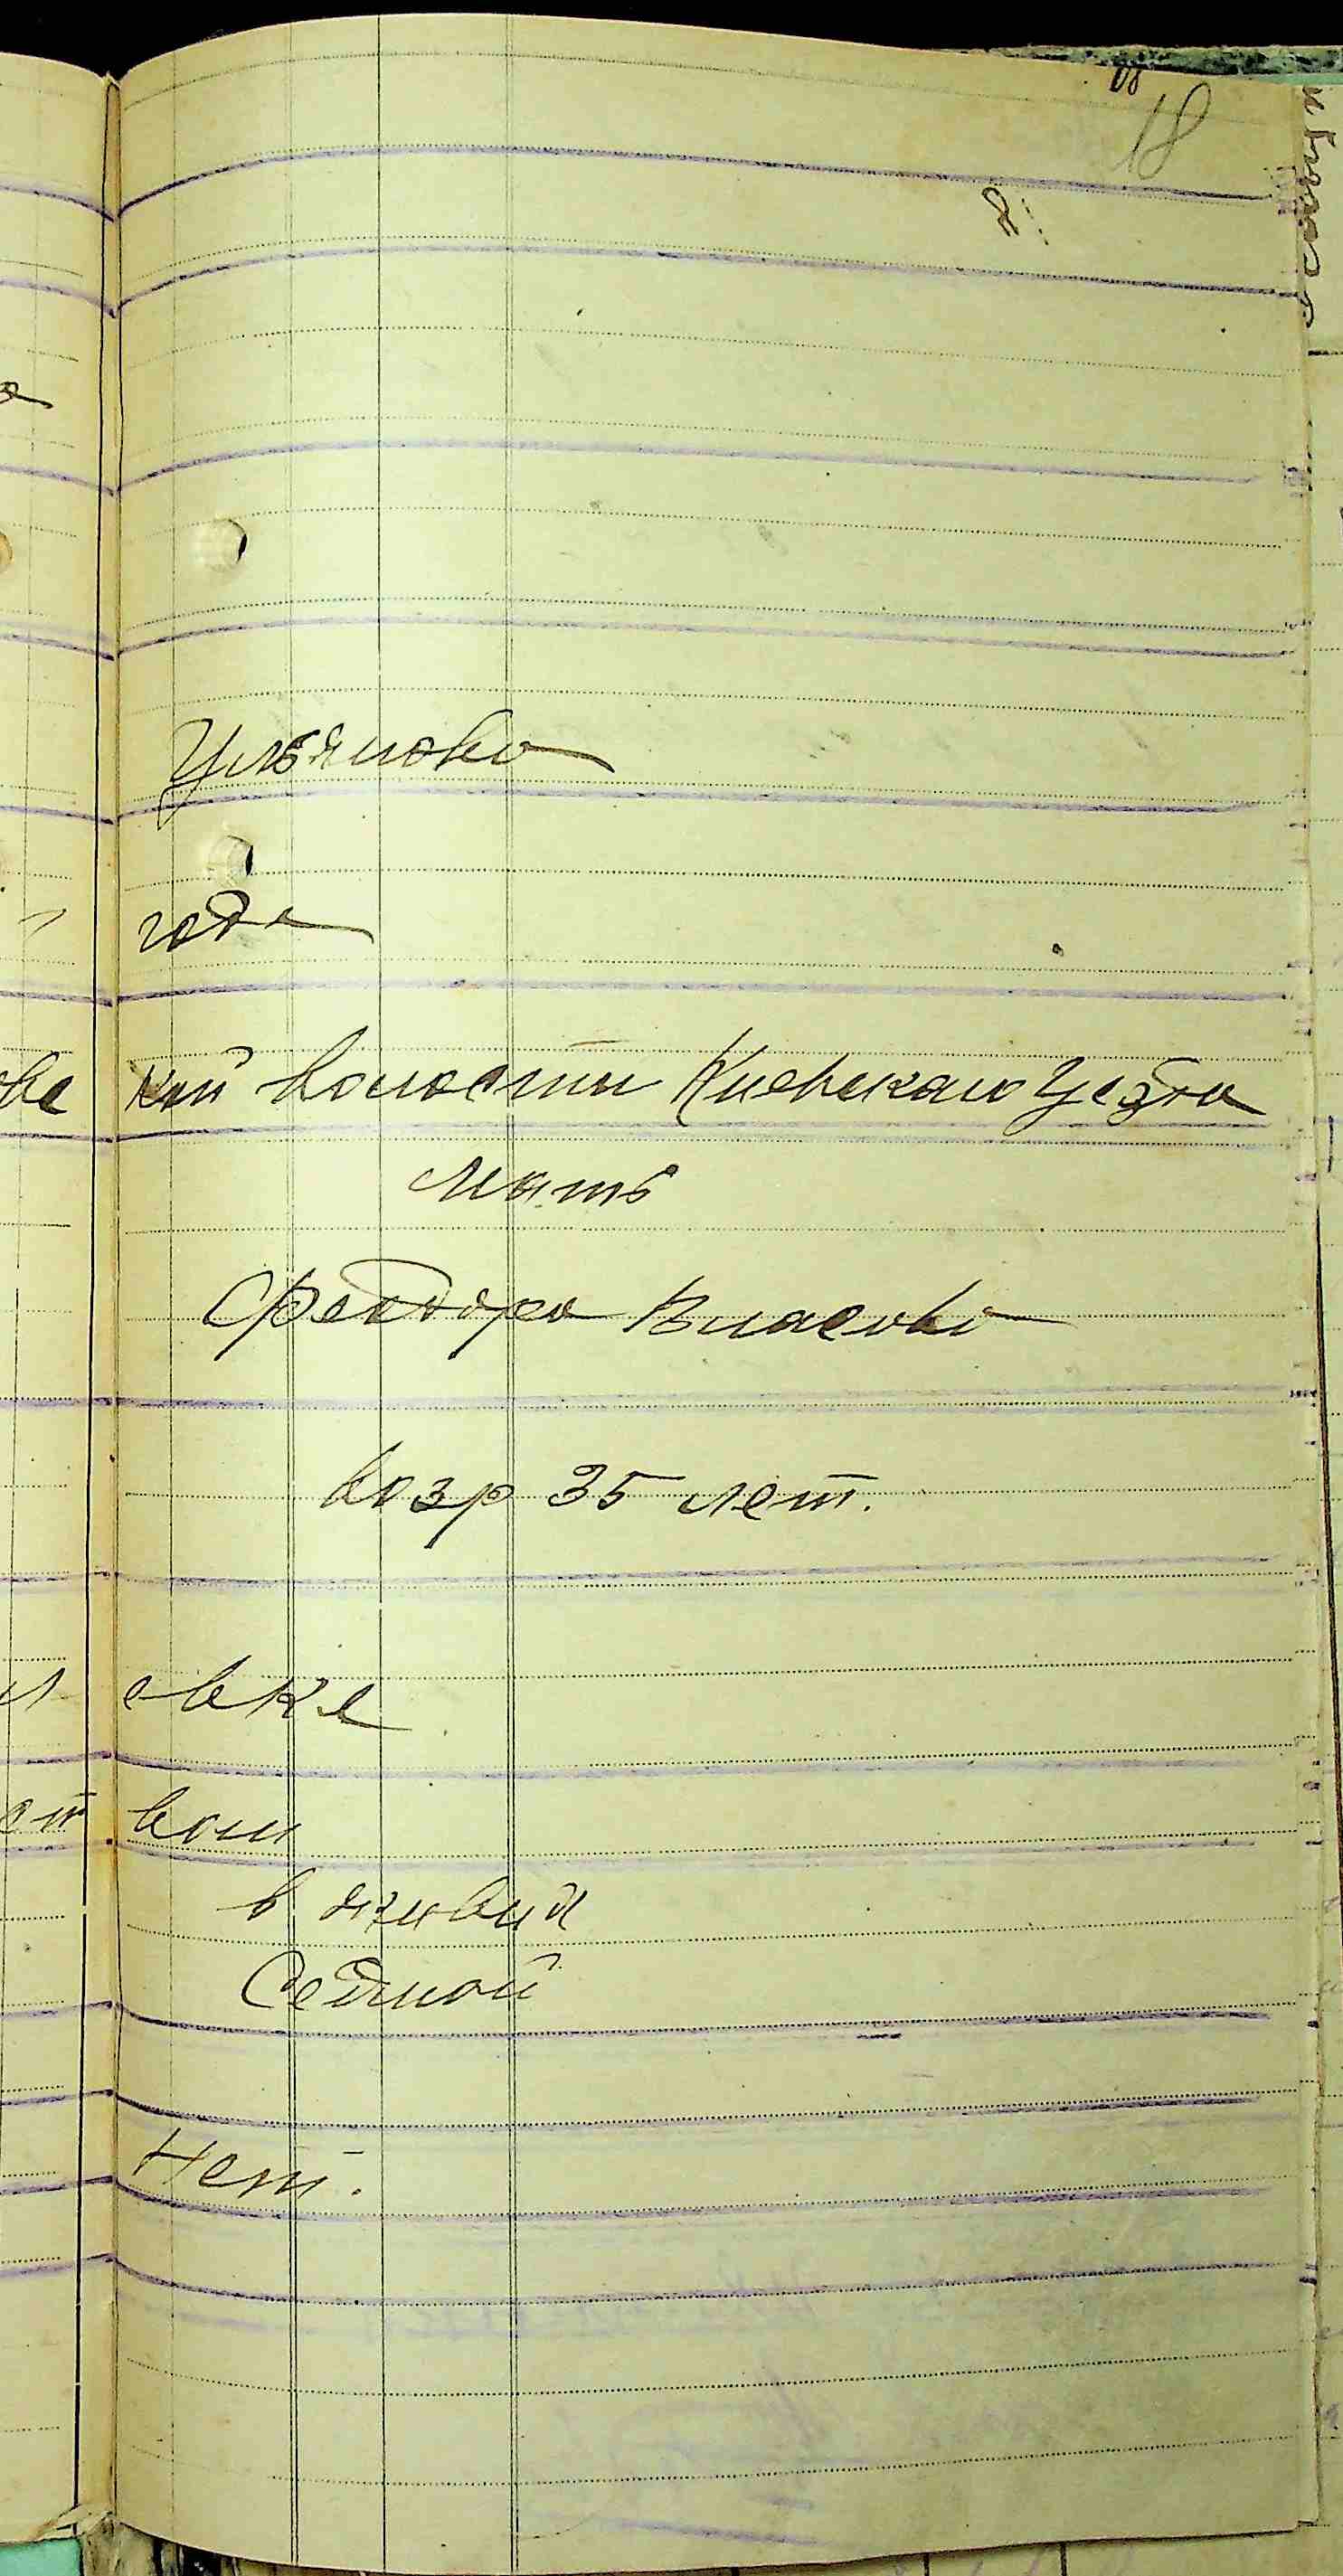 18
Ульянова
года
кой волости Киевского Уезда
мать
Феодора Власова
возр 35 лет.
евке
вом
в живых
Седмой
Нет.